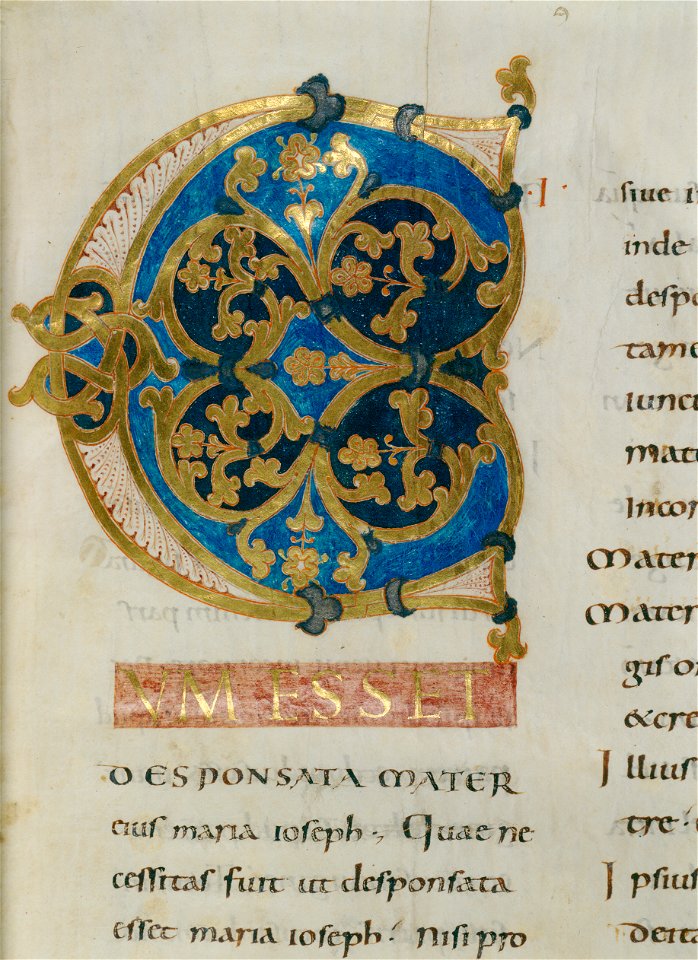 C
VM ESSET
DESPONSATA MATER
eius maria ioseph; Quae ne
cessitas fuit ut desponsata
esset maria ioseph? Nisi pro
siue i
inde
desp
tame
iunct
mate
Incor
Mater
Mater
gis o
&cre
Illius
tre
Ipsius
deita